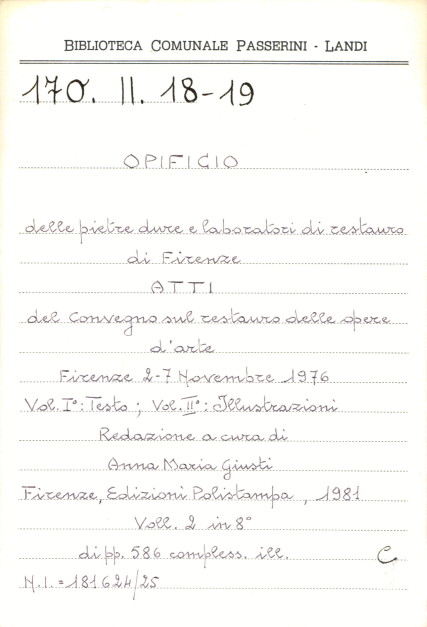 BIBLIOTECA COMUNALE PASSERINI - LANDI
170. II. 18-19
OPIFICIO
delle pietre dure e laboratori di restauro
di Firenze
ATTI
del Convegno sul restauro delle opere
d'arte
Firenze 2-7 Novembre 1976
Vol. I°: Testo ; Vol. II°: Illustrazioni
Redazione a cura di
Anna Maria Giusti
Firenze, Edizioni Polistampa, 1981
Voll. 2 in 8°
di pp. 586 compless. ill. C
N.I. = 181624/25